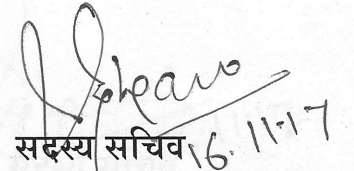 सदस्य सचिव 16.11.17